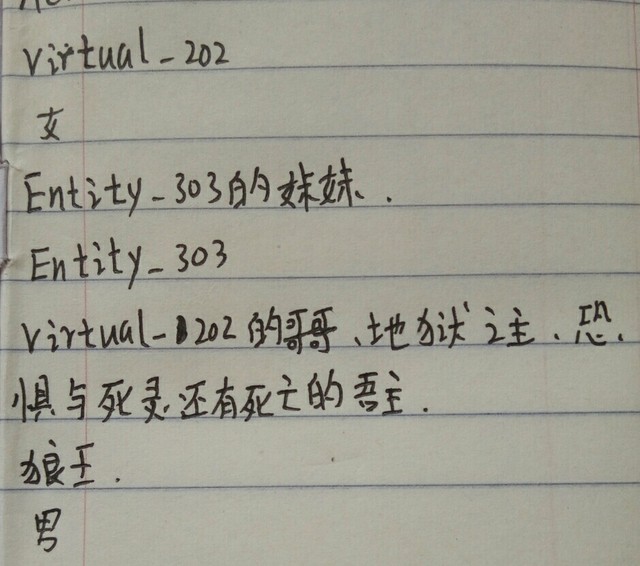 Virtual_202
女
Entity_303的妹妹.
Entity_303
Virtual_202的哥哥、地狱之主、恐
惧与死灵还有死亡的吾主.
狼王.
男